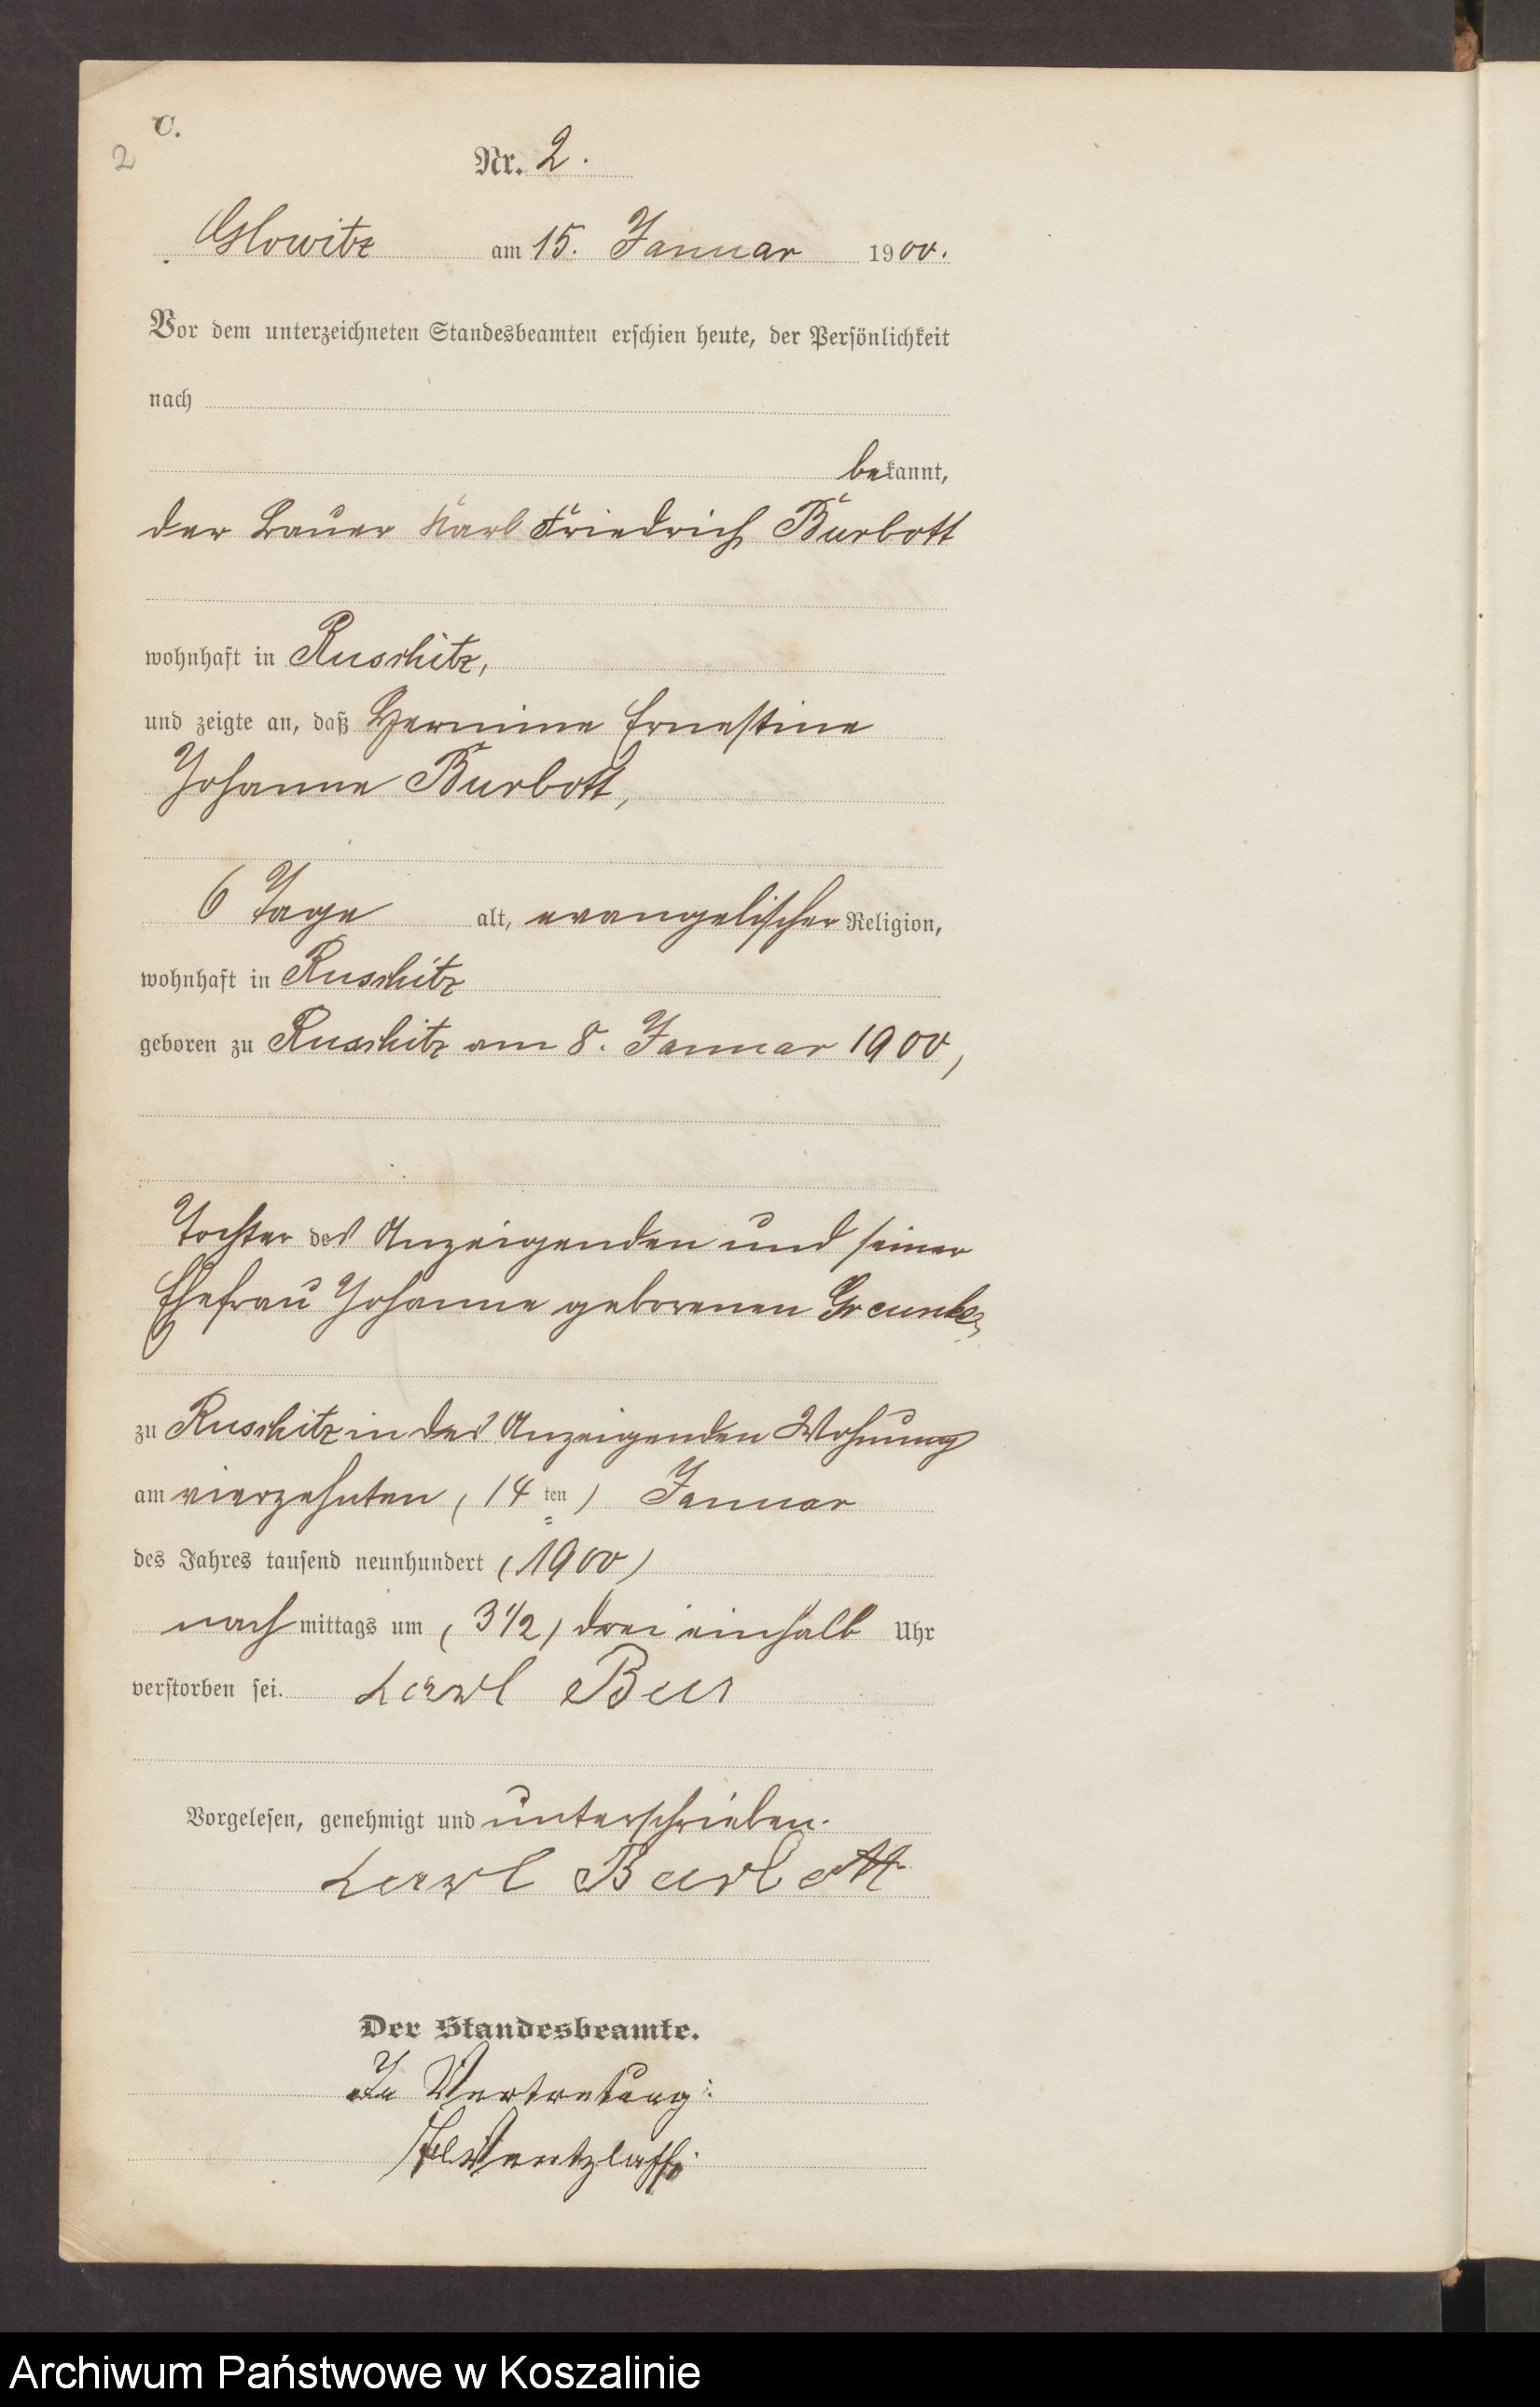 C.
2
Nr. 2.
Glowitz am 15. Januar 1900.
Vor dem unterzeichneten Standesbeamten erschien heute, der Persönlichkeit
nach
bekannt,
der Bauer Karl Friedrich Burbott
wohnhaft in Ruschitz,
und zeigte an, daß Hermine Ernestine
Johanne Burbott,
6 Tage alt, evangelischer Religion,
wohnhaft in Ruschitz
geboren zu Ruschitz am 8. Januar 1900,
Tochter des Anzeigenden und seiner
Ehefrau Johanne geborenen
zu Ruschitz in des Anzeigenden Wohnung
am vierzehnten (14 ten) Januar
des Jahres tausend neunhundert (1900)
nachmittags um (3 1/2) drei einhalb Uhr
verstorben sei. Karl Bur
Vorgelesen, genehmigt und unterschrieben.
Karl Burbott
Der Standesbeamte.
In Vertretung:
Archiwum Państwowe w Koszalinie